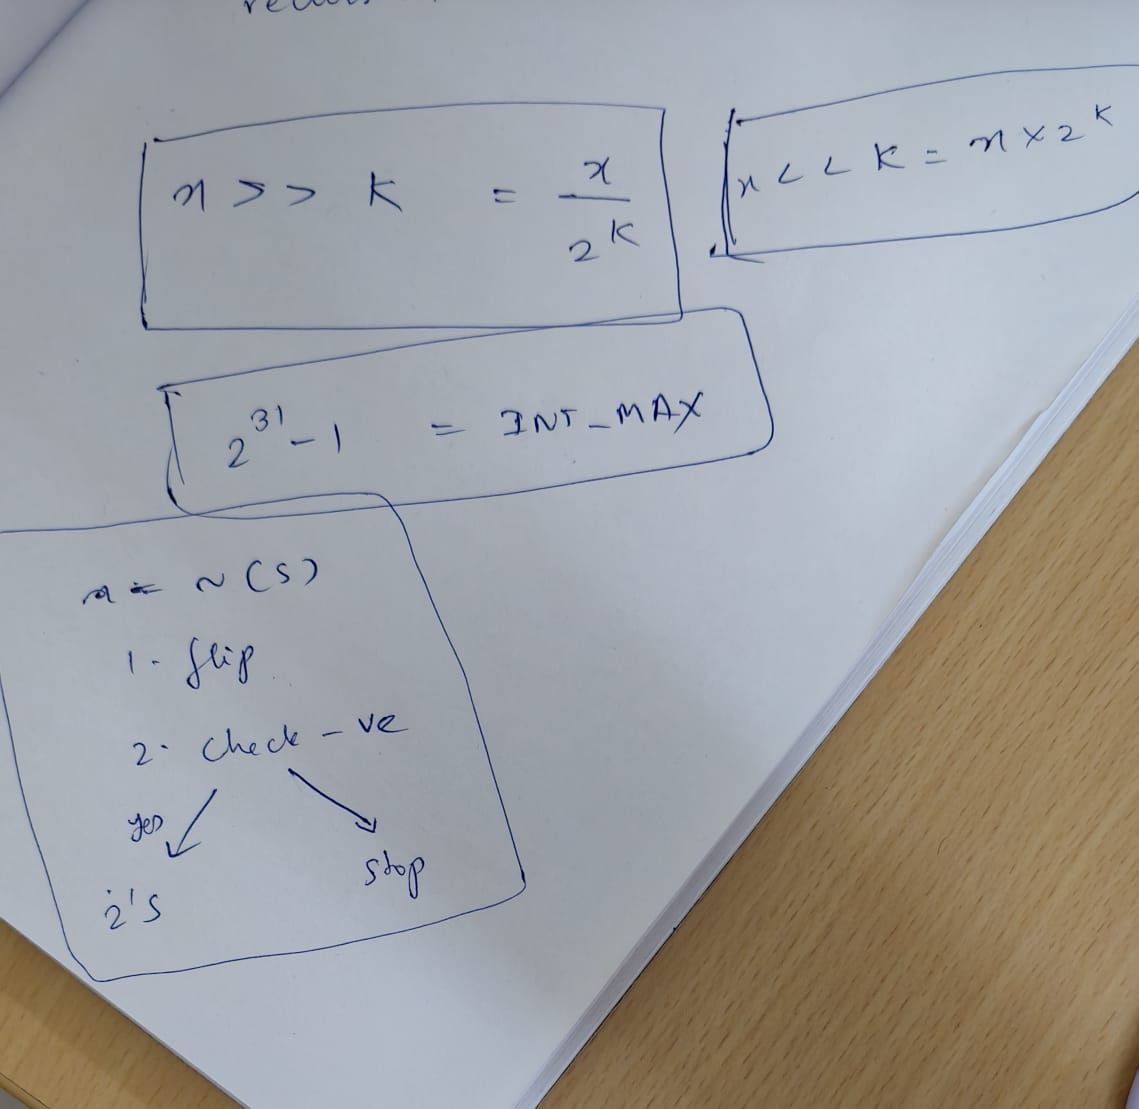 x >> k = x / 2^k
x << k = x × 2^k
2^31 - 1 = INT_MAX
x = ~ (5)
1. flip
2. check -ve
yes
stop
2's